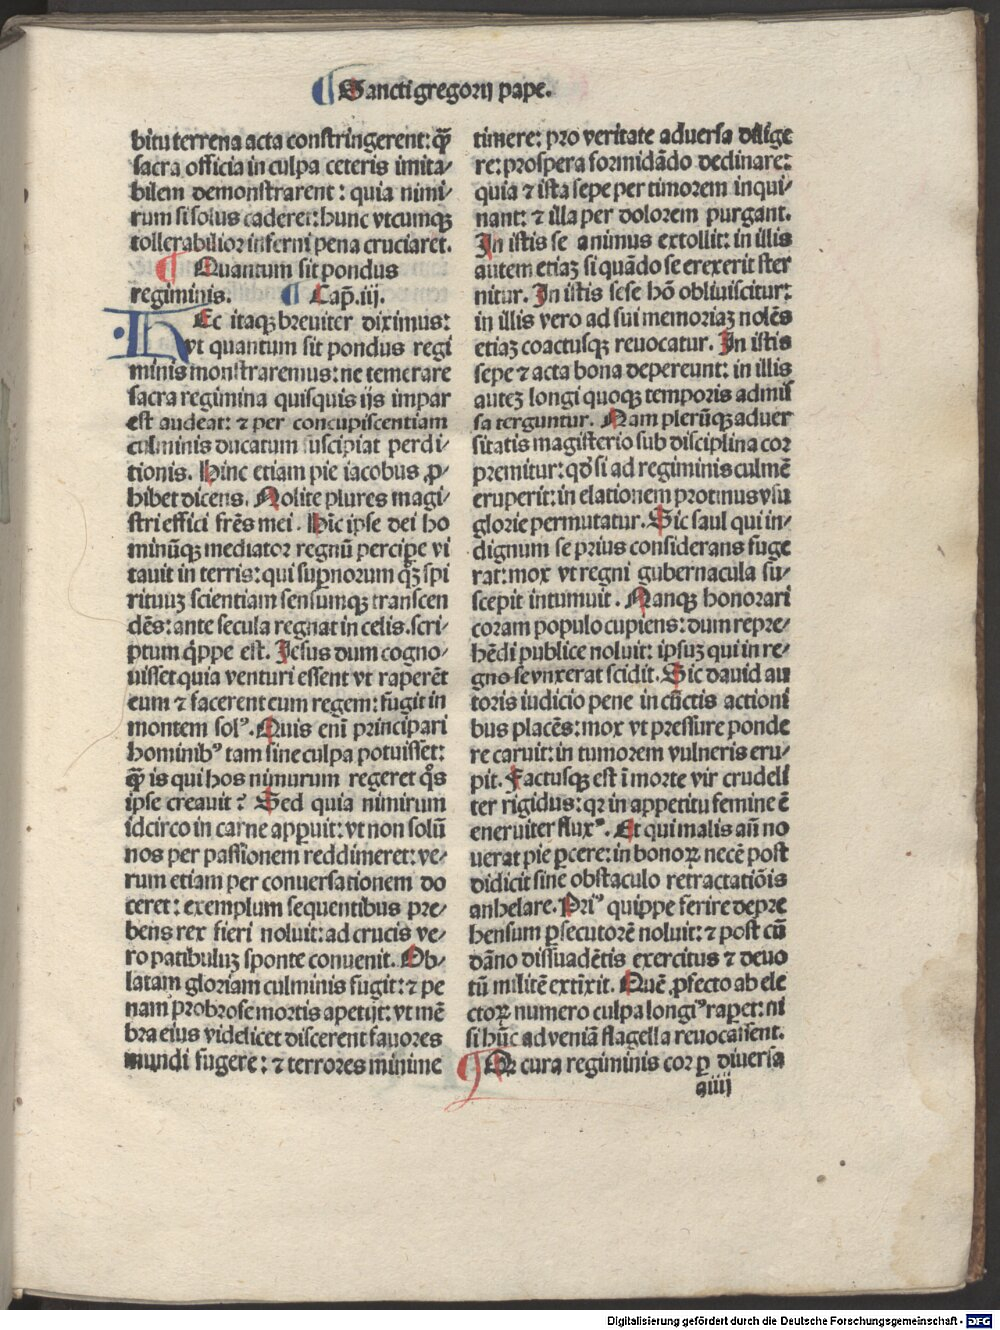 ¶ Sancti gregorij pape.
bitu terrena acta constringerent: q̄
sacra officia in culpa ceteris imita-
bilem demonstrarent: quia nimi-
rum si solus caderet: hunc vtcumqꝫ
tollerabilior inferni pena cruciaret.
¶ Quantum sit pondus
regiminis. ¶ Cap̄. iij.
HEc itaqꝫ breuiter diximus:
vt quantum sit pondus regi
minis monstraremus: ne temerare
sacra regimina quisquis ijs impar
est audeat: ⁊ per concupiscentiam
culminis ducatum suscipiat perdi-
tionis. Hinc etiam pie iacobus ꝓ-
hibet dicens. Nolite plures magi-
stri effici fr̄es mei. Hīc ipse dei ho
minūqꝫ mediator regnū percipe vi
tauit in terris: qui suꝑnorum qꝫ̄ spi
rituuꝫ scientiam sensumqꝫ transcen
dēs: ante secula regnat in celis. scri-
ptum q̇ppe est. Jesus dum cogno-
uisset quia venturi essent vt raperēt
eum ⁊ facerent eum regem: fugit in
montem solꝰ. Quis enī principari
hominibꝰ tam sine culpa potuisset:
q̄ is qui hos nimirum regeret q̊s
ipse creauit? Sed quia nimirum
idcirco in carne apꝑuit: vt non solū
nos per passionem reddimeret: ve-
rum etiam per conuersationem do
ceret: exemplum sequentibus pre-
bens rex fieri noluit: ad crucis ve-
ro patibuluꝫ sponte conuenit. Ob-
latam gloriam culminis fugit: ⁊ pe
nam probrose mortis apetijt: vt mē
bra eius videlicet discerent fauores
mundi fugere: ⁊ terrores minime
timere: pro veritate aduersa dilige
re: prospera formidādo declinare:
quia ⁊ ista sepe per timorem inqui-
nant: ⁊ illa per dolorem purgant.
Jn istis se animus extollit: in illis
autem etiaꝫ si quādo se erexerit ster
nitur. Jn istis sese hō obliuiscitur:
in illis vero ad sui memoriaꝫ nolēs
etiaꝫ coactusqꝫ reuocatur. Jn istis
sepe ⁊ acta bona depereunt: in illis
auteꝫ longi quoqꝫ temporis admis
sa terguntur. Nam plerūqꝫ aduer
sitatis magisterio sub disciplina cor
premitur: qd̓ si ad regiminis culmē
eruperit: in elationem protinus vsu
glorie permutatur. Sic saul qui in-
dignum se prius considerans fuge
rat: mox vt regni gubernacula su-
scepit intumuit. Nanqꝫ honorari
coram populo cupiens: dum repre-
hēdi publice noluit: ipsuꝫ qui in re-
gno se vnxerat scidit. Sic dauid au
toris iudicio pene in cūctis actioni
bus placēs: mox vt pressure ponde
re caruit: in tumorem vulneris eru-
pit. Factusqꝫ est ī morte vir crudeli
ter rigidus: qꝛ in appetitu femine ē
eneruiter fluxꝰ. Et qui malis aū no
uerat pie ꝑcere: in bonoꝝ necē post
didicit sine obstaculo retractatiōis
anhelare. Priꝰ quippe ferire depre
hensum ꝑsecutorē noluit: ⁊ post cū
dāno dissuadētis exercitus ⁊ deuo
tū militē extīxit. Quē ꝓfecto ab ele
ctoꝝ numero culpa longiꝰ rapet: ni
si hūc ad veniā flagella reuocassent.
¶ Qꝛ cura regiminis cor ꝑ diuersa
aiiij
Digitalisierung gefördert durch die Deutsche Forschungsgemeinschaft - DFG